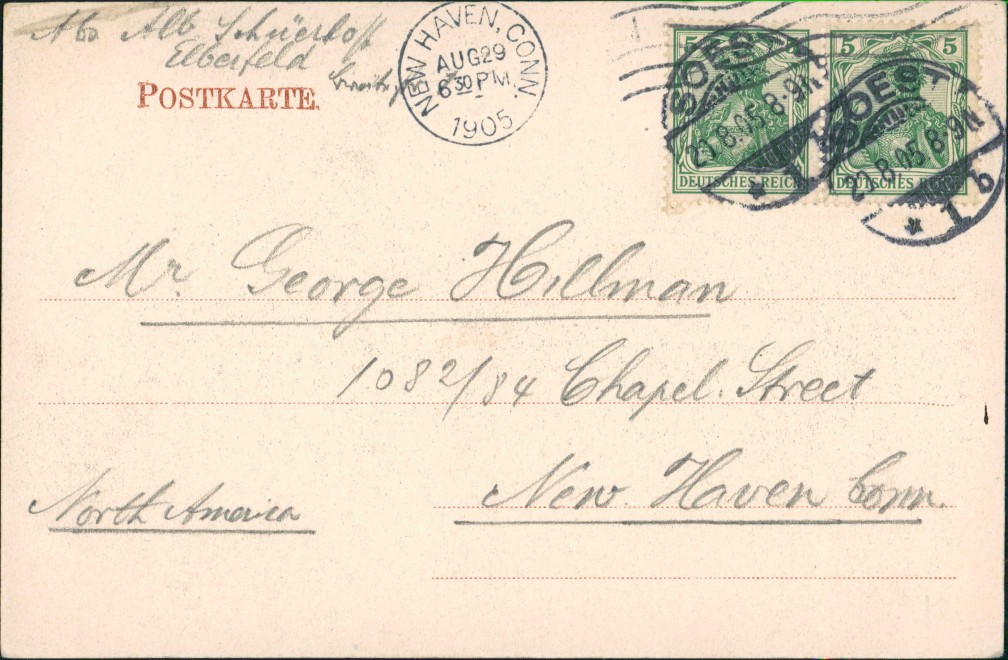 Abs Alb Schüerhoff
Elberfeld
POSTKARTE.
NEW HAVEN, CONN.
AUG 29
6 30 PM.
1905
5 5
DEUTSCHES REICH
5 5
DEUTSCHES REICH
SOEST
8.05 8-9N
* 1 b
SOEST
8.05 8-9N
* 1 b
Mr. George Hillman
1082/84 Chapel. Street
New. Haven Conn.
North America